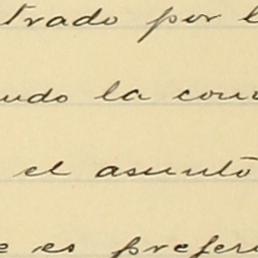 trado por l
udo la con
el asunto
e es prefer